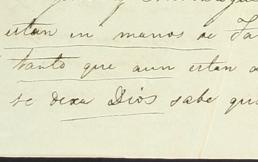 estan en manos de Ta
tanto que aun estan a
se dexa Dios sabe qu